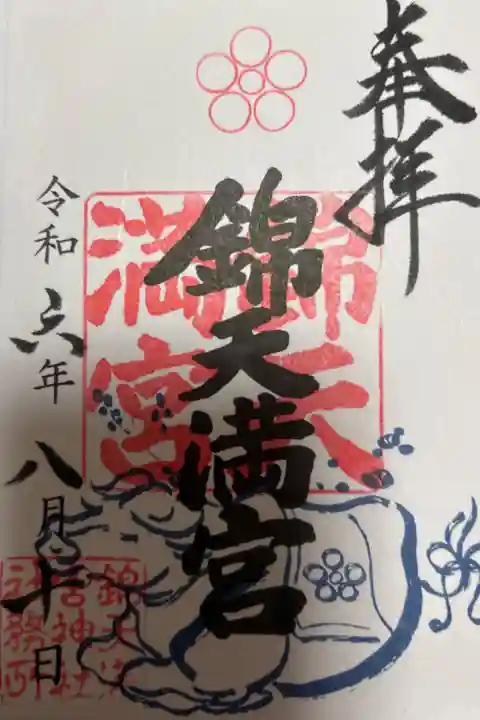 奉拝
錦天満宮
錦天
満宮
令和六年八月十日
錦天満
宮神社
社務所